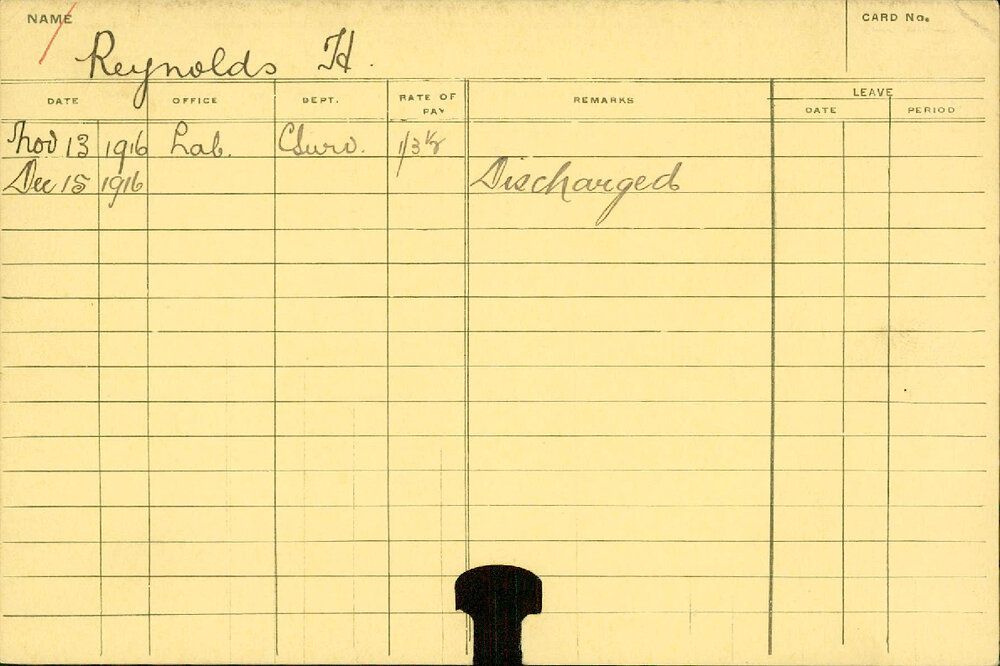 NAME
CARD No.
Reynolds H.
DATE OFFICE DEPT. RATE OF PAY REMARKS LEAVE
DATE PERIOD
Nov 13 1916 Lab. CSurv. 1/3 1/2
Dec 15 1916 Discharged